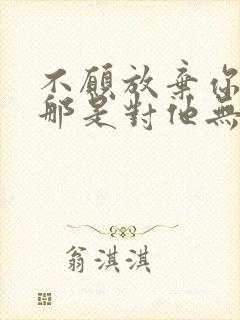 不願放棄你
那是對他無
翁淇淇